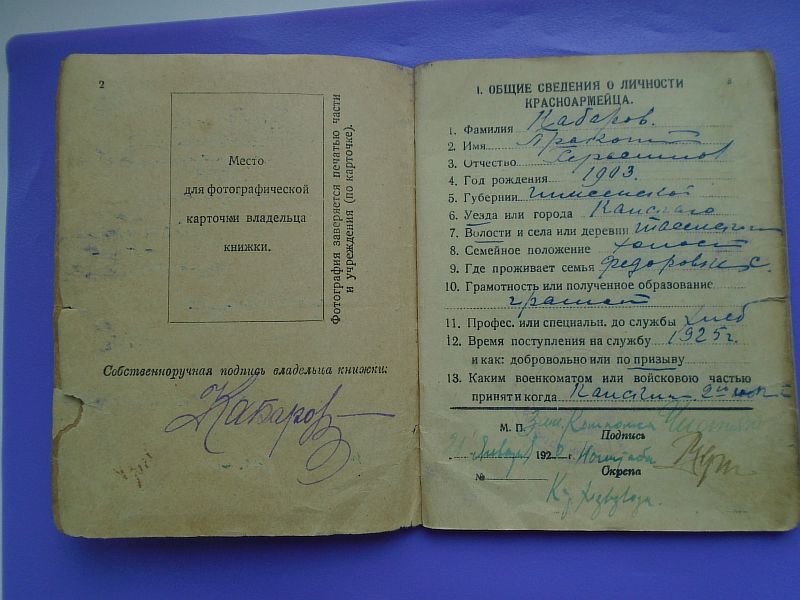 2
Место
для фотографической
карточки владельца
книжки.
Фотография заверяется печатью части
и учреждения (по карточке).
Собственноручная подпись владельца книжки:
Кабаров
3
1. ОБЩИЕ СВЕДЕНИЯ О ЛИЧНОСТИ
КРАСНОАРМЕЙЦА.
1. Фамилия Кабаров.
2. Имя
3. Отчество
4. Год рождения 1903.
5. Губернии
6. Уезда или города Канского
7. Волости и села или деревни
8. Семейное положение холост
9. Где проживает семья
10. Грамотность или полученное образование
грамот
11. Профес. или специальн. до службы хлеб
12. Время поступления на службу 1925 г.
и как: добровольно или по призыву
13. Каким военкоматом или войсковою частью
принят и когда Канским
М. П.
Подпись
Января 192 г.
Скрепа
№